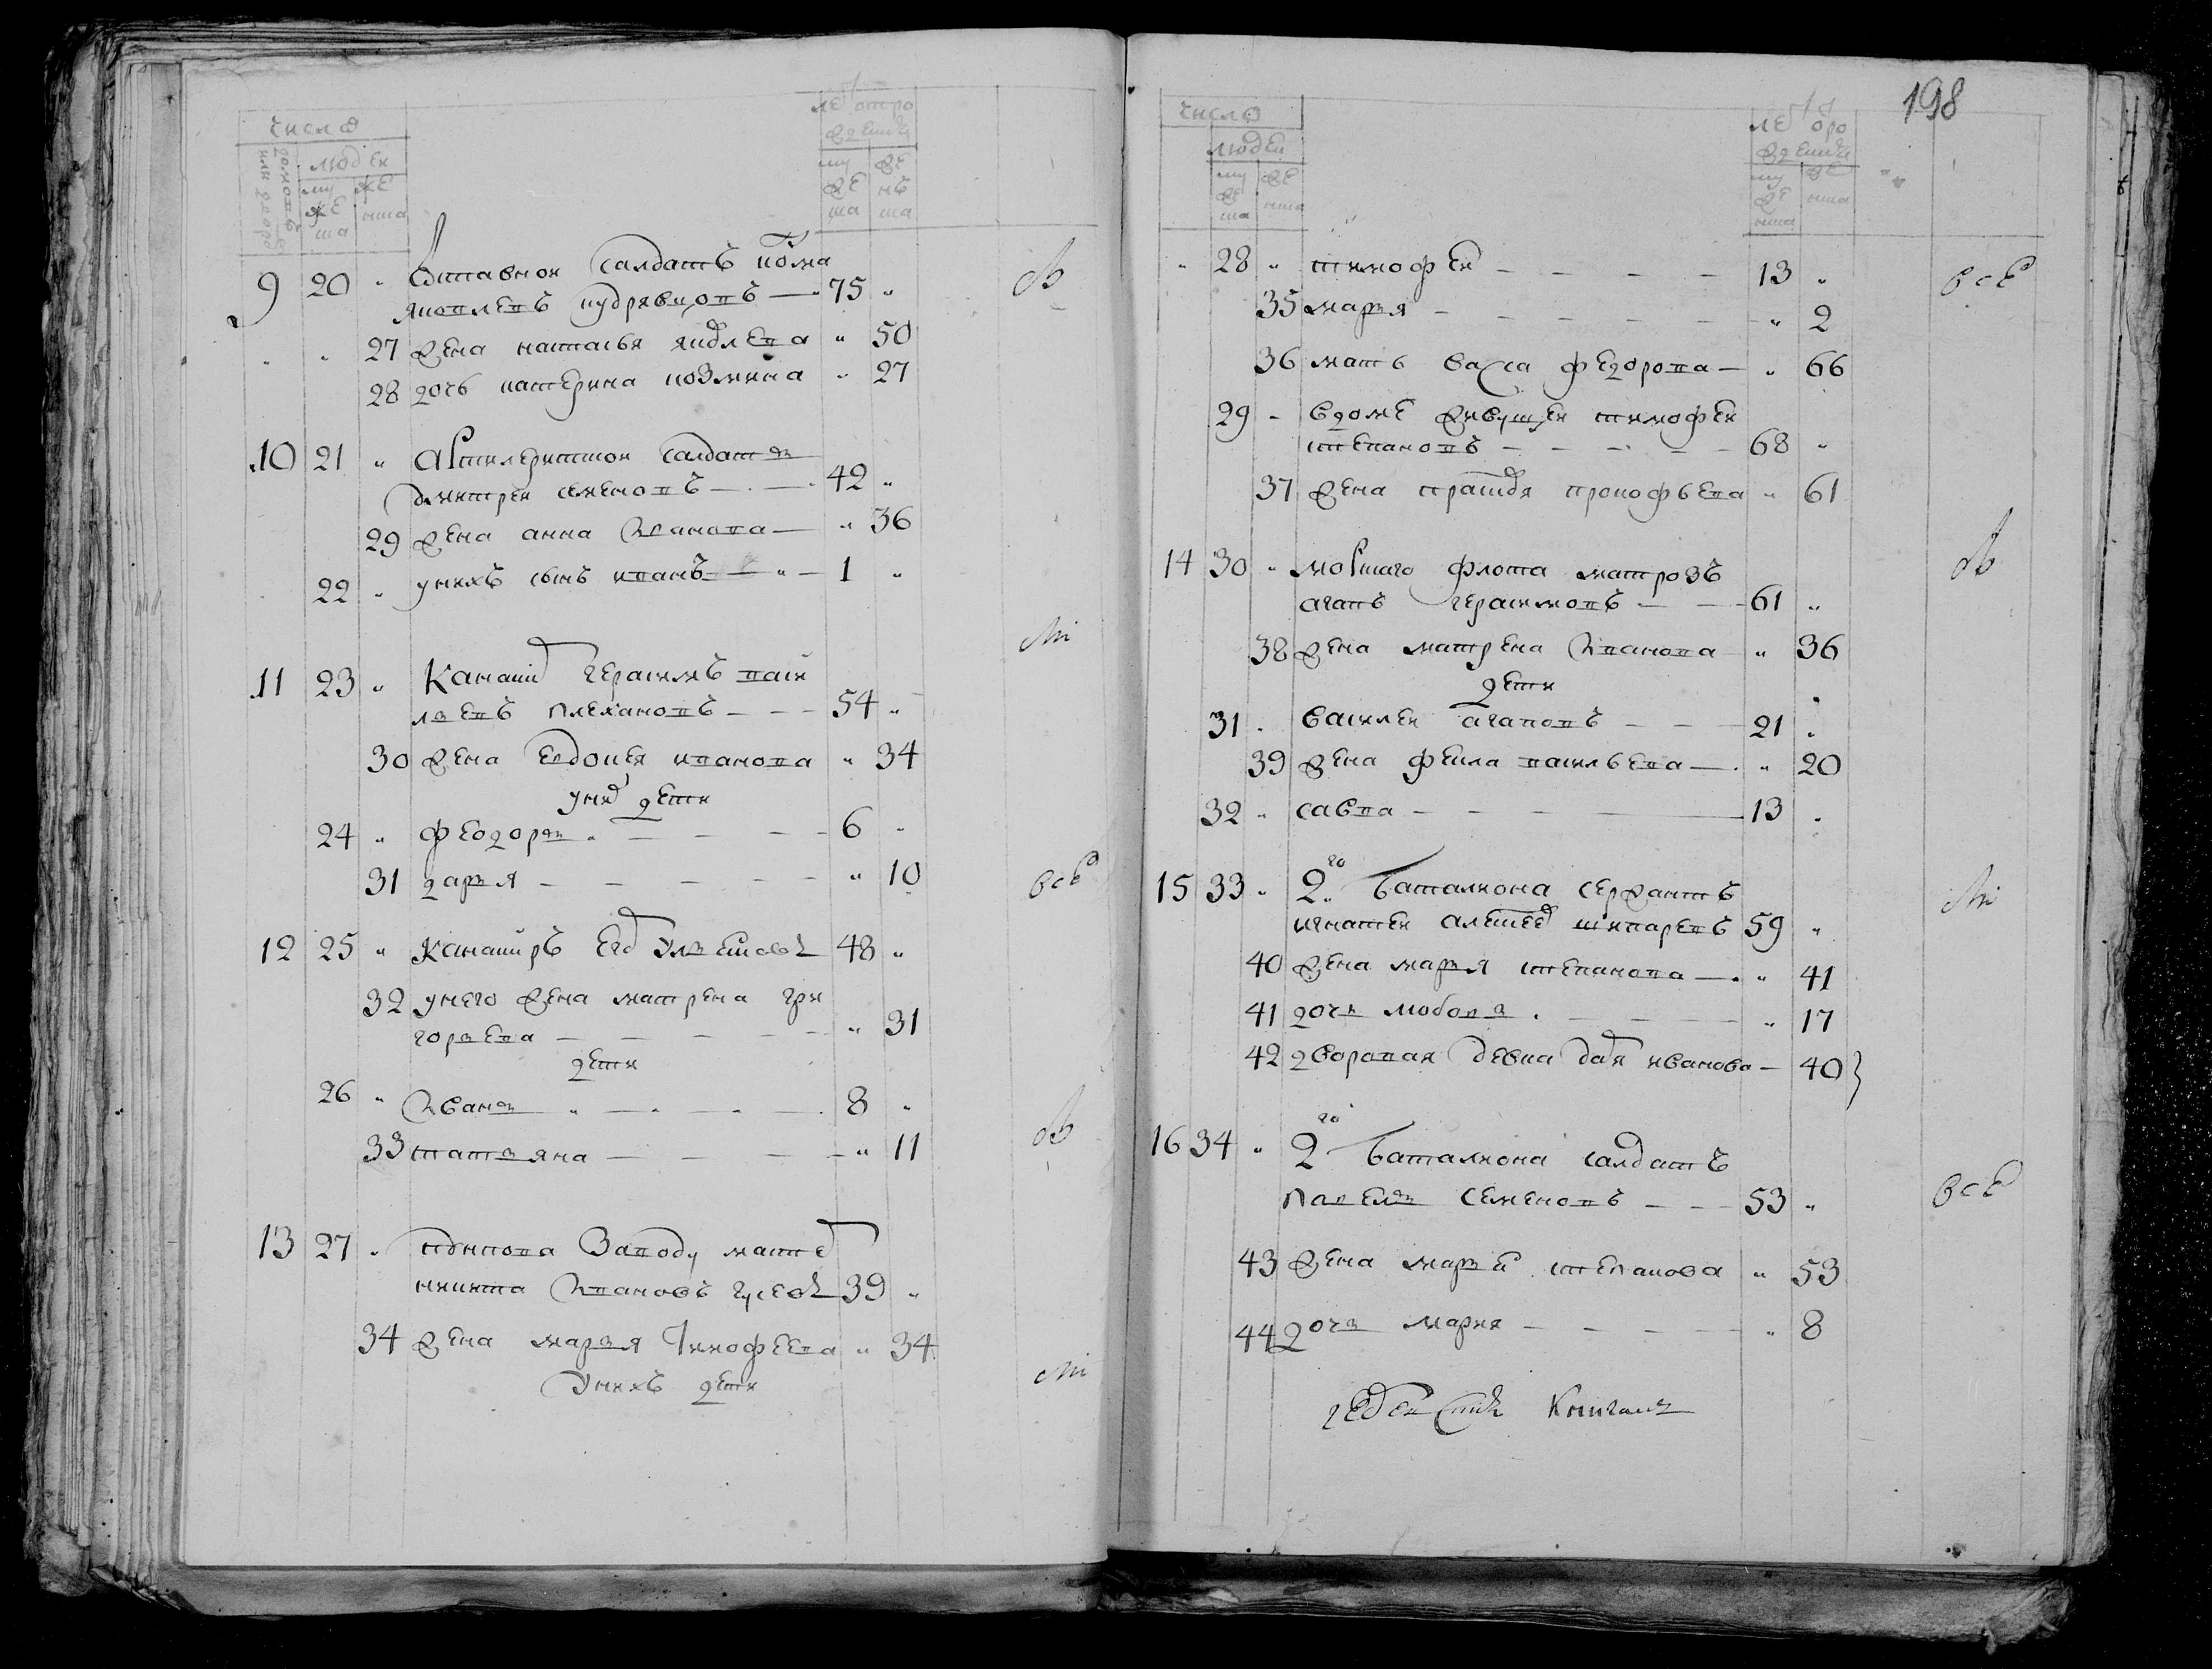 число
домовъ или дворо
людеи
муже ска
же нска
летъ отро ждения
муже ска
женъ ска
9 20 " Отставнои салдатъ козма
яковлевъ кудрявцовъ — 75 "
" " 27 жена наталья яковлева " 50
28 дочь катерина козмина " 27
10 21 " Артилерискои салдатъ
дмитреи семеновъ — 42 "
29 жена анна Иванова — " 36
22 " унихъ сынъ иванъ — " — 1 "
11 23 " Канани герасимъ васи
льевъ плехановъ — — — 54 "
30 жена Евдокея иванова " 34
уни дети
24 " феодоръ — — — 6 "
31 дарья — — — — — " 10
все
12 25 " Канапиръ 48 "
32 унего жена матрена гри
горьева — — — — " 31
дети
26 " Иванъ " — — — 8 "
33 татьяна — — — — " 11
13 27 " завода масте
никита Ивановъ гусевъ 39 "
34 жена марья Тимофеева " 34
Унихъ дети
198
число
людеи
муже ска
женска
летъ оро ждения
муже нска
женска
" 28 " тимофеи — — — — 13 "
все
35 марья — — — — — — " 2
36 мать васа федорова — " 66
29 - вдоме живущеи тимофеи
степановъ — — — — — 68 "
37 жена прокофьева " 61
14 30 " морскаго флота матрозъ
агапъ герасимовъ — — 61 "
38 жена матрена Иванова " 36
дети
31 " василеи агаповъ — — — 21 "
39 жена фекла васильева — " 20
32 " савва — — — — 13 "
15 33 " 2го баталиона сержантъ
игнатеи алексеев 59 "
40 жена марья степанова — " 41
41 дочь любовь — — — " 17
42 дворовая девка дая иванова — 40
16 34 " 2го баталиона салдатъ
павелъ семеновъ — — — 53 "
все
43 жена марья степанова " 53
44 дочь мария — — — — " 8